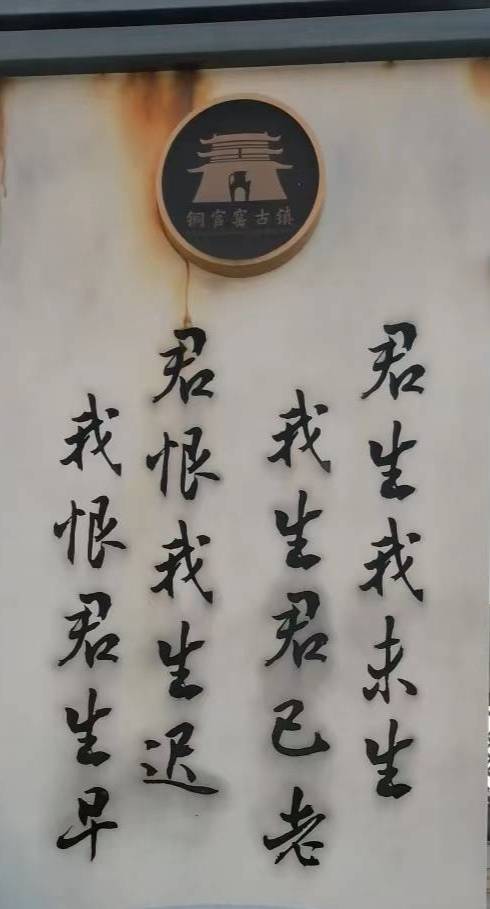 铜官窑古镇
君生我未生
我生君已老
君恨我生迟
我恨君生早